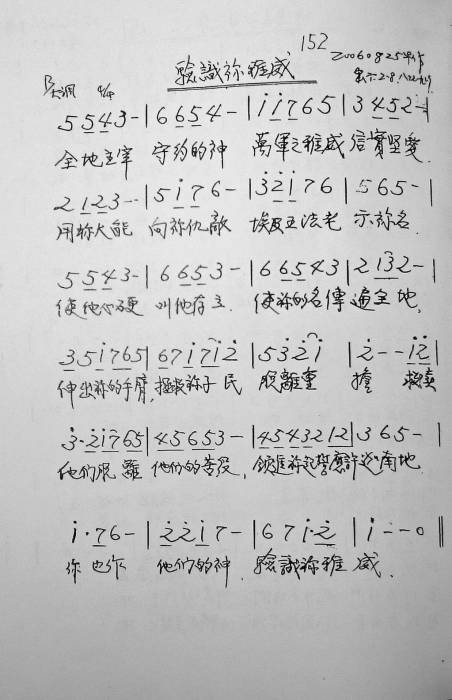 152
驗識祢雅威
20060825
B大調 4/4
5 5 4 3 - | 6 6 5 4 - | i i 7 6 5 | 3 4 5 2 - |
全地主宰 守約的神 萬軍之雅威 信實堅愛
2 1 2 3 - | 5 i 7 6 - | 3 2 i 7 6 | 5 6 5 - |
用祢大能 向祢仇敵 埃及王法老 示祢名
5 5 4 3 - | 6 6 5 3 - | 6 6 5 4 3 | 2 1 3 2 - |
使他心硬 叫他存立 使祢的名傳遍全地,
3 5 i 7 6 5 | 6 7 i 7 i 2 | 5 3 2 i | 2 - - i 2 |
伸出祢的手臂, 拯救祢子民 脫離重擔 救贖
3 · 2 i 7 6 5 | 4 5 6 5 3 - | 4 5 4 3 2 1 2 | 3 6 5 - |
他們脫離 他們的苦役, 領進祢起誓應許迦南地
i · 7 6 - | 2 2 i 7 - | 6 7 i · 2 | i - - 0 ||
你也作 他們的神 驗識祢雅威.